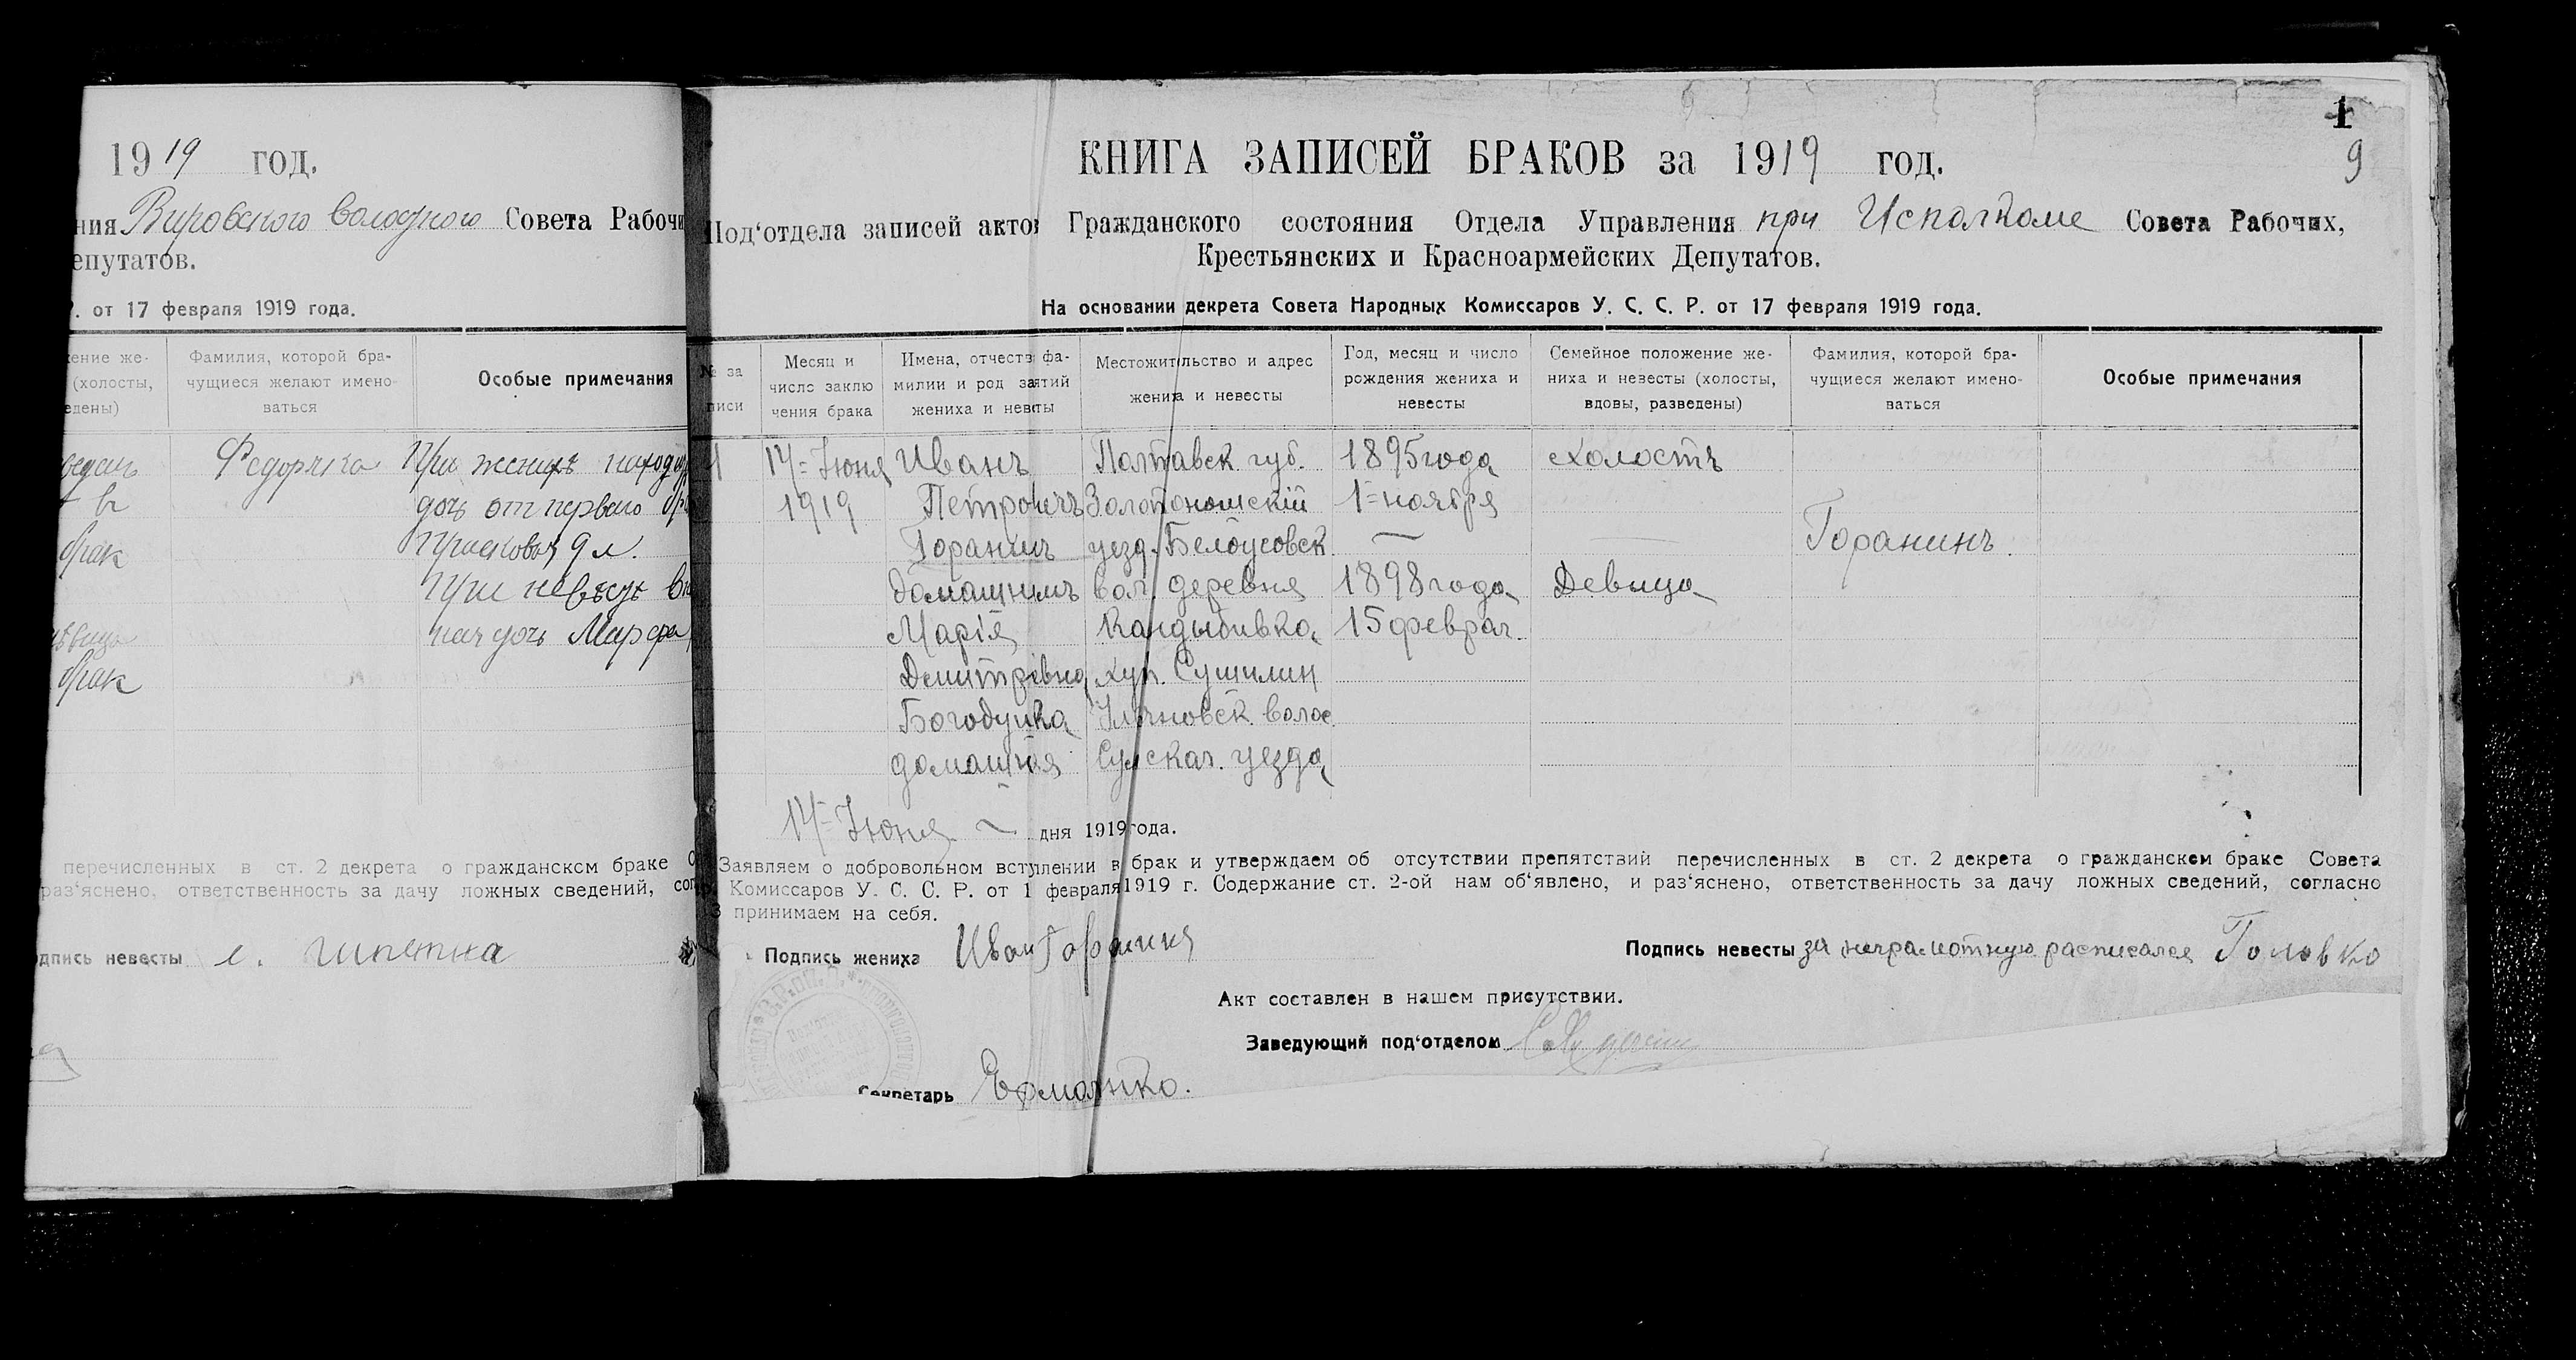 1919 год.
Вировского волостного Совета Рабочи
епутатов.
от 17 февраля 1919 года.
ение же-
(холосты,
едены)
Фамилия, которой бра-
чущиеся желают имено-
ваться
Особые примечания
Федоряка
При женихѣ
дочь от перваго
9 л.
брак
При
дочь
брак
перечисленных в ст. 2 декрета о гражданском браке
раз‘яснено, ответственность за дачу ложных сведений,
дпись невесты
1
9
КНИГА ЗАПИСЕЙ БРАКОВ за 1919 год.
Под‘отдела записей актов Гражданского состояния Отдела Управления при Исполкоме Совета Рабочих,
Крестьянских и Красноармейских Депутатов.
На основании декрета Совета Народных Комиссаров У. С. С. Р. от 17 февраля 1919 года.
№ за
писи
Месяц и
число заклю
чения брака
Имена, отчеств фа-
милии и род занятий
жениха и невесты
Местожительство и адрес
жениха и невесты
Год, месяц и число
рождения жениха и
невесты
Семейное положение же-
ниха и невесты (холосты,
вдовы, разведены)
Фамилия, которой бра-
чущиеся желают имено-
ваться
Особые примечания
1 14 = Июня Иванъ Полтавск губ. 1895 года холостъ
1919 Петровичъ Золотоношскій 1 = ноября
Горанинъ уезд. Белоусовск — Горанинъ.
домашнимъ вол. деревня 1898 года Девица
Марія Кандыбивка 15 феврал.
Дмитрівна хут. Сушилин
Богодушка волос
домашняя Сумскаг. уезда
14 = Июня ~ дня 1919 года.
Заявляем о добровольном вступлении в брак и утверждаем об отсутствии препятствий перечисленных в ст. 2 декрета о гражданском браке Совета
Комиссаров У. С. С. Р. от 1 февраля 1919 г. Содержание ст. 2-ой нам об‘явлено, и раз‘яснено, ответственность за дачу ложных сведений, согласно
3 принимаем на себя.
Подпись жениха Иван Горанинъ
Подпись невесты за неграмотную расписался Головко
Акт составлен в нашем присутствии.
Заведующий под‘отделом
Секретарь Ермоленко.